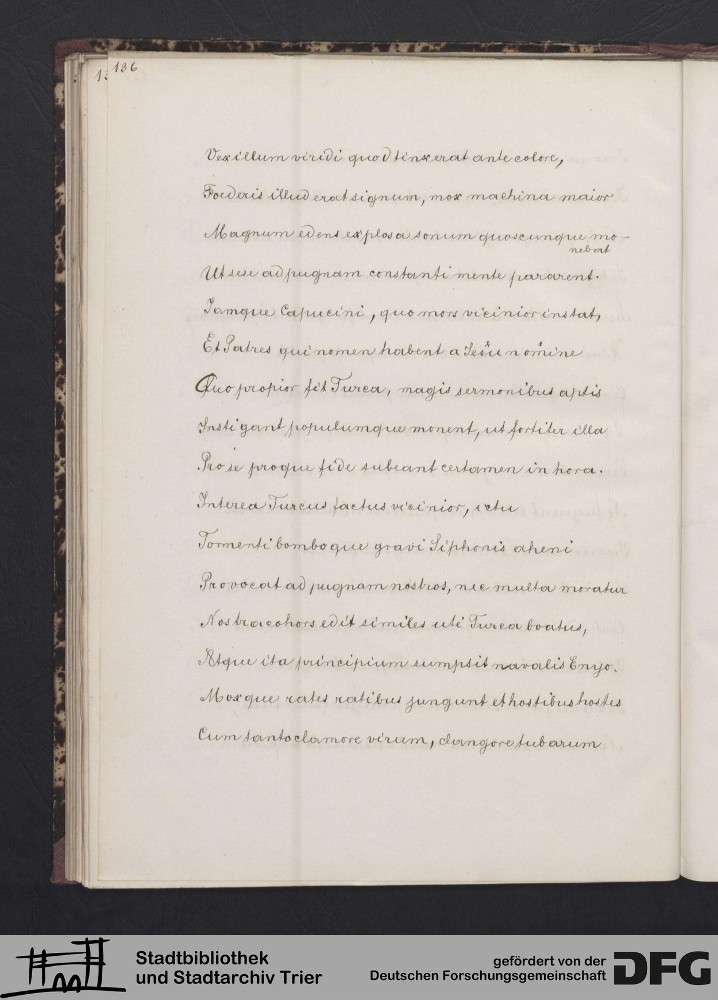 136
Vexillum viridi quod tinxerat ante colore,
Foederis illud erat signum, mox machina maior
Magnum edens explosa sonum quoscunque mo-
nebat
Ut sese ad pugnam constanti mente pararent.
Jamque Capucini, quo mors vicinior instat,
Et Patres qui nomen habent a Jesu nomine
Quo propior fit Turca, magis sermonibus aptis
Instigant populumque monent, ut fortiter illa
Pro se proque fide subeant certamen in hora.
Interea Turcus factus vicinior, ictu
Tormenti bomboque gravi Siphonis aheni
Provocat ad pugnam nostros, nec multa moratur
Nostra cohors edit similes uti Turca boatus,
Atque ita principium sumpsit navalis Enyo.
Moxque rates ratibus jungunt et hostibus hostes
Cum tanto clamore virum, clangore tubarum
Stadtbibliothek
und Stadtarchiv Trier
gefördert von der
Deutschen Forschungsgemeinschaft
DFG